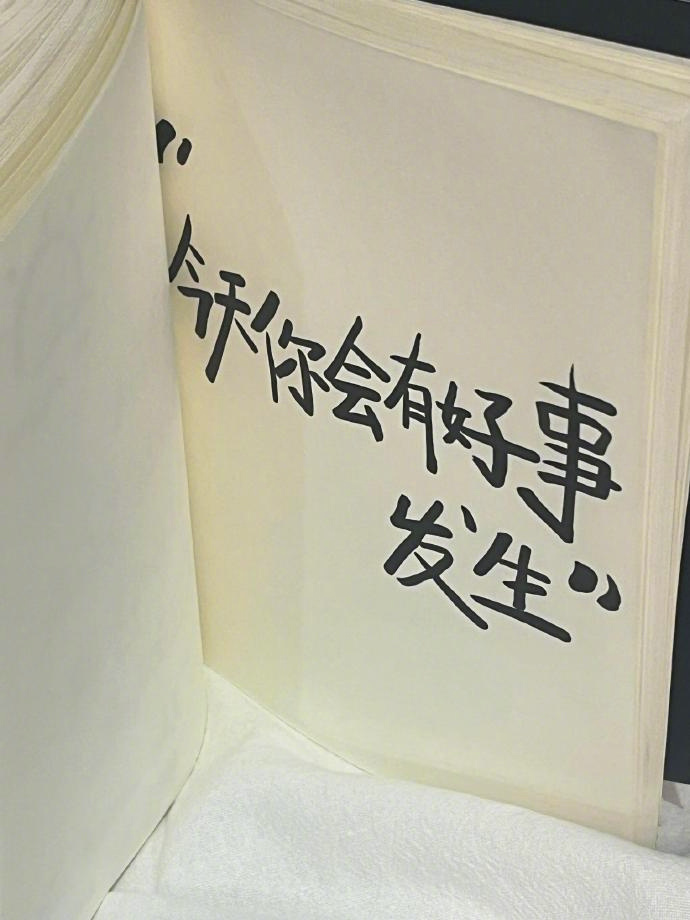 “今天你会有好事
发生”